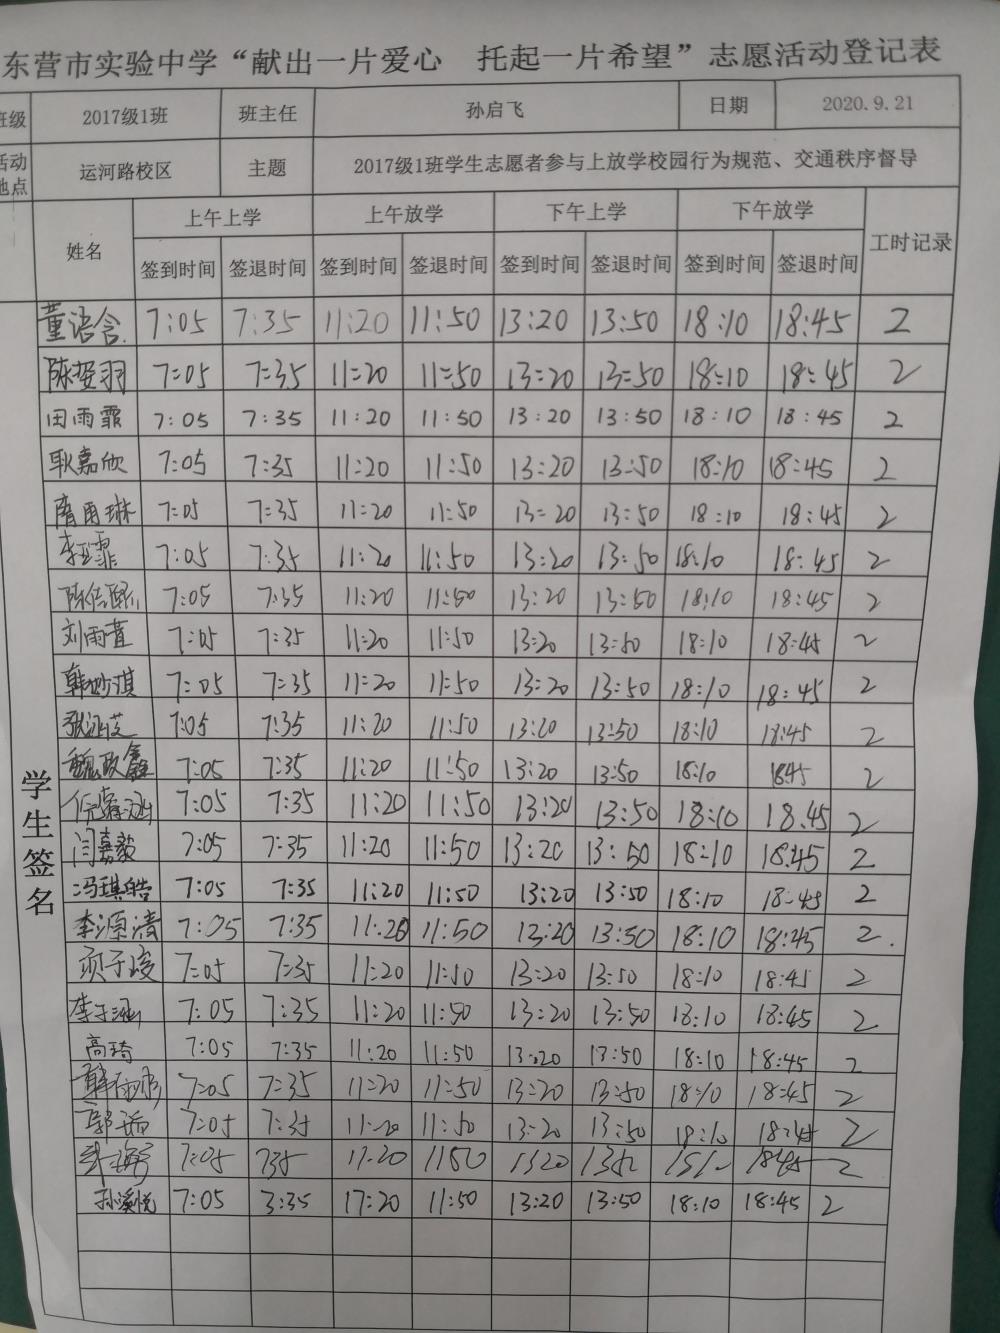 东营市实验中学“献出一片爱心 托起一片希望”志愿活动登记表
班级 2017级1班 班主任 孙启飞 日期 2020.9.21
活动地点 运河路校区 主题 2017级1班学生志愿者参与上放学校园行为规范、交通秩序督导
姓名 上午上学 上午放学 下午上学 下午放学 工时记录
签到时间 签退时间 签到时间 签退时间 签到时间 签退时间 签到时间 签退时间
学生签名
董语含 7:05 7:35 11:20 11:50 13:20 13:50 18:10 18:45 2
陈姿羽 7:05 7:35 11:20 11:50 13:20 13:50 18:10 18:45 2
田雨霏 7:05 7:35 11:20 11:50 13:20 13:50 18:10 18:45 2
耿嘉欣 7:05 7:35 11:20 11:50 13:20 13:50 18:10 18:45 2
隋雨琳 7:05 7:35 11:20 11:50 13:20 13:50 18:10 18:45 2
李 霏 7:05 7:35 11:20 11:50 13:20 13:50 18:10 18:45 2
陈 7:05 7:35 11:20 11:50 13:20 13:50 18:10 18:45 2
刘雨萱 7:05 7:35 11:20 11:50 13:20 13:50 18:10 18:45 2
韩妙淇 7:05 7:35 11:20 11:50 13:20 13:50 18:10 18:45 2
张 7:05 7:35 11:20 11:50 13:20 13:50 18:10 18:45 2
魏政鑫 7:05 7:35 11:20 11:50 13:20 13:50 18:10 1845 2
7:05 7:35 11:20 11:50 13:20 13:50 18:10 18.45 2
闫嘉毅 7:05 7:35 11:20 11:50 13:20 13:50 18:10 18:45 2
冯琪皓 7:05 7:35 11:20 11:50 13:20 13:50 18:10 18:45 2
李源清 7:05 7:35 11:20 11:50 13:20 13:50 18:10 18:45 2.
项子峻 7:05 7:35 11:20 11:50 13:20 13:50 18:10 18:45 2
李子涵 7:05 7:35 11:20 11:50 13:20 13:50 18:10 18:45 2
高琦 7:05 7:35 11:20 11:50 13:20 13:50 18:10 18:45 2
韩 7:05 7:35 11:20 11:50 13:20 13:50 18:10 18:45 2
郭 7:05 7:35 11:20 11:50 13:20 13:50 18:10 18:45 2
7:05 735 11:20 1150 1320 1845 2
孙溪悦 7:05 3:35 17:20 11:50 13:20 13:50 18:10 18:45 2